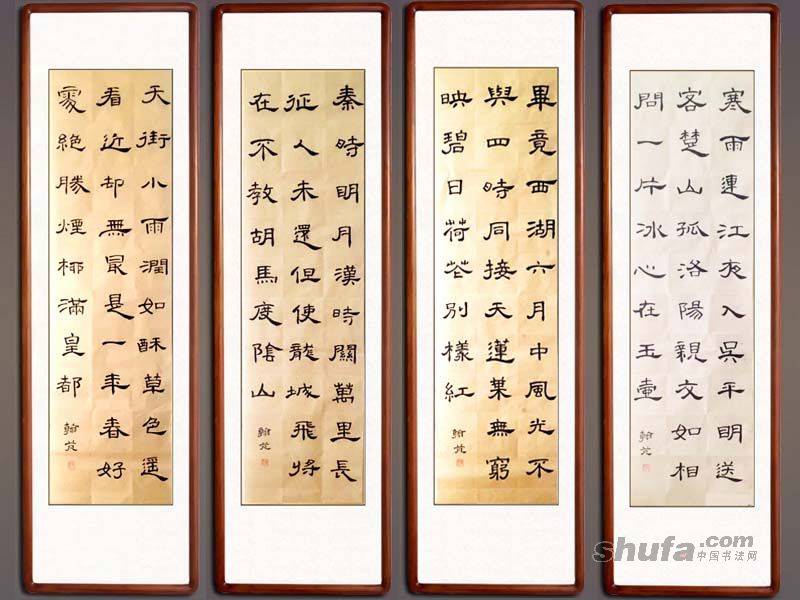 寒雨連江夜入吳平明送
客楚山孤洛陽親友如相
問一片冰心在玉壺
翰
畢竟西湖六月中風光不
與四時同接天蓮葉無窮
映碧日荷花別樣紅
翰
秦時明月漢時關萬里長
征人未還但使龍城飛將
在不教胡馬度陰山
翰
天街小雨潤如酥草色遥
看近却無最是一年春好
處絕勝煙柳滿皇都
翰
shufa.com
中国书法网